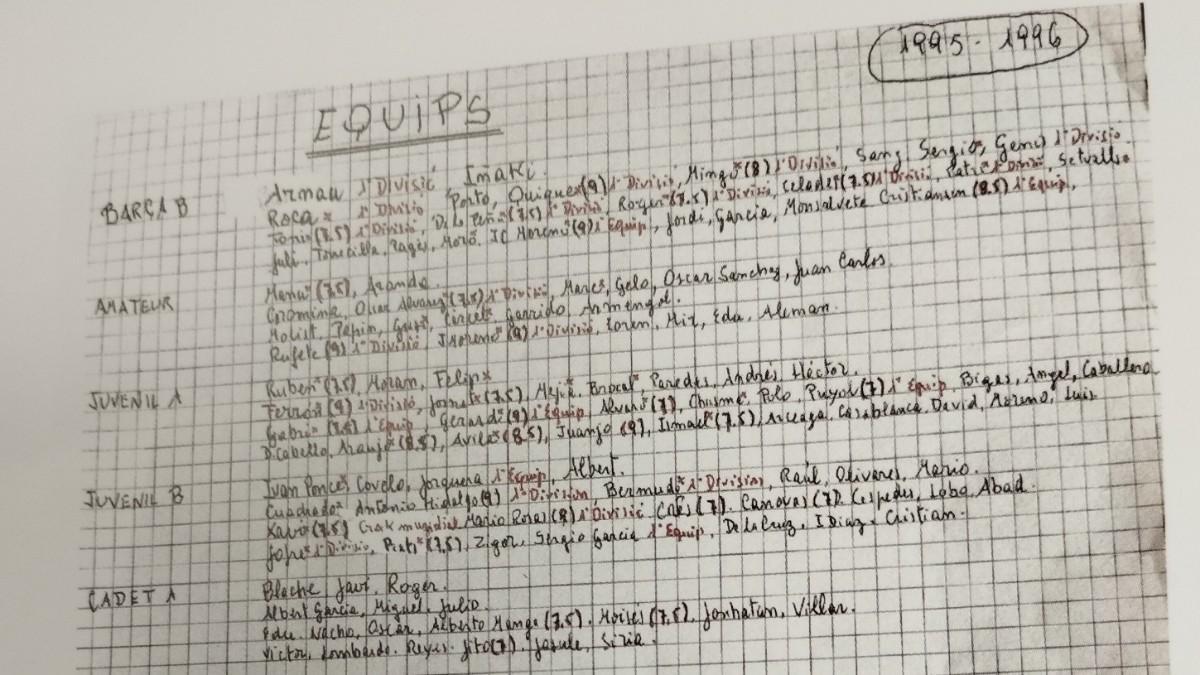 1995 - 1996
EQUIPS
BARÇA B
Arnau 1ª Divisió Iñaki.
Roca x 1ª Divisió, Porto, Quique x (9) 1ª Divisió, Mingo x (8) 1ª Divisió, Sanz, Sergio x, Genís 1ª Divisió
(7.5) 1ª Divisió, De la Peña x (7.5) 1ª Divisió, Roger x (7.5) 1ª Divisió, Celades (7.5) 1ª Divisió, 1ª Divisió, Setvalls.
Juli, Torrecilla, Pagès, Moró, JC Moreno x (9) 1ª Equip, Jordi, Garcia, Monsalvete Cristiansen (8.5) 1ª Equip,
AMATEUR
Manu x (7.5), Aranda.
Coromina, Oscar Alvarez x (7.5) 1ª Divisió, Mares, Gelo, Oscar Sanchez, Juan Carlos.
Molist, Garrido, Armengol.
Rufete (9) 1ª Divisió, J Moreno x (9) 1ª Divisió, Loren, Edu, Aleman.
JUVENIL A
Ruben x (7.5), Moram, Felip x
Ferrón (9) 1ª Divisió, (7.5), Brocal x, Paredes, Andrés, Héctor.
Gabri x (7.5) 1ª Equip, Gerard x (9) 1ª Equip, Alvaro x (7), Polo, Puyol (7) 1ª Equip, Bigas, Angel, Caballero
D. Cabello, Araujo x (8.5), Aviles x (8.5), Juanjo (9), Ismael x (7.5), Arteaga, Casablanca, David, Moreno, Luis.
JUVENIL B
Ivan Ponces, Covelo, Jorquera 1ª Equip, Albert.
Cuadrado x Antonio Hidalgo (9) 1ª Division, Bermudo x 1ª Division, Raúl, Olivares, Mario.
Xavi x (7.5) Crak mundial Mario Rosas (8) 1ª Divisió, (7), Canovas (7). Cespedes, Lobo, Abad.
Jofre x 1ª Divisió, Prats x (7.5), Zigor, Sergio Garcia 1ª Equip, De la Cruz, I Diaz, Cristian.
CADET A
Blache, Javi, Roger.
Albert Garcia, Miguel, Julio.
Edu, Nacho, Oscar, Alberto Manga (7.5), Moises (7.5), Jonhatan, Villar.
Victor, Lombardo, Reyes, Jito (7), Josule, Siria.